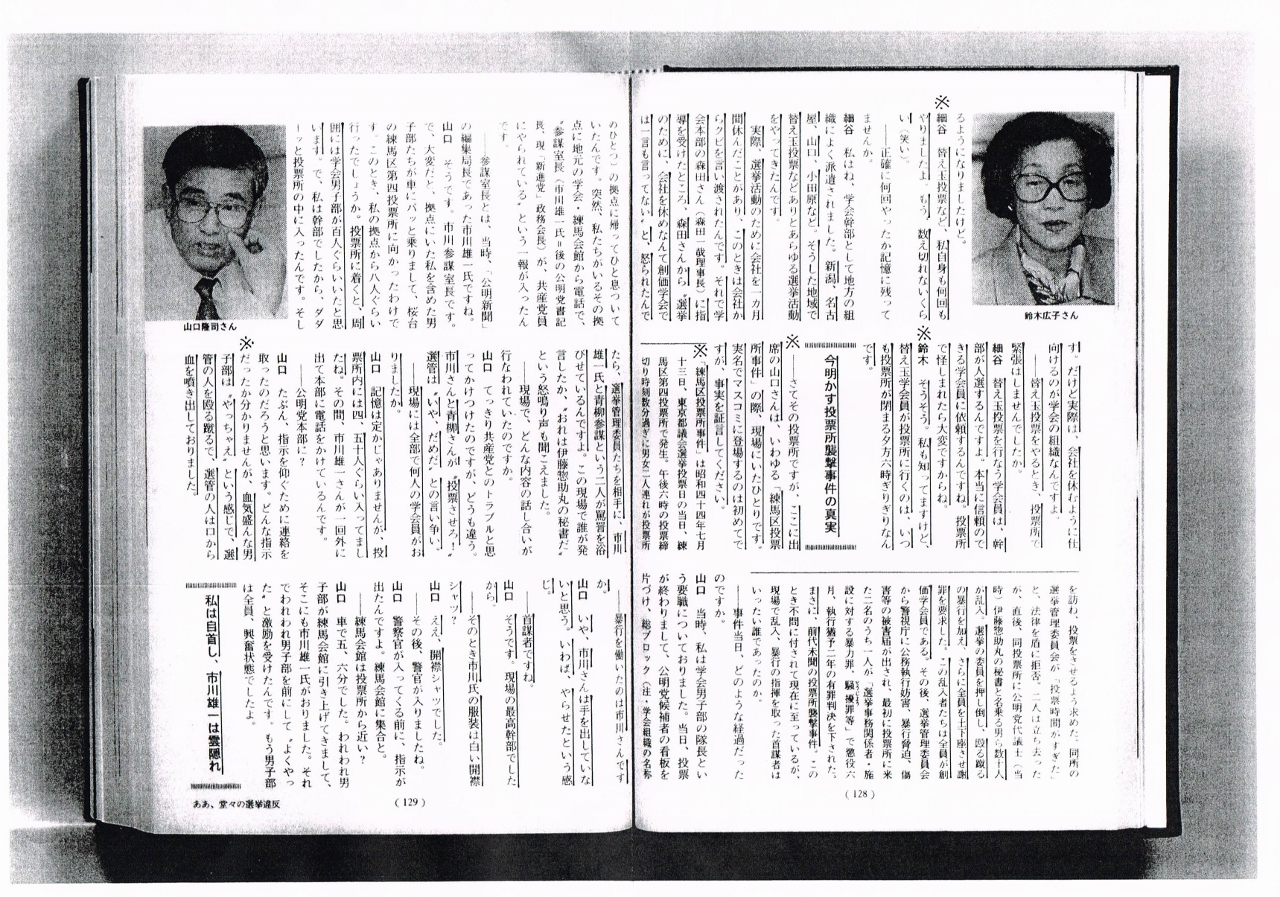 るようになりましたけど。
※
細谷　替え玉投票など、私自身も何回も
やりましたよ。もう、数え切れないくら
い（笑い）。
──正確に何回やったか記憶に残って
ませんか。
細谷　私はね、学会幹部として地方の組
織によく派遣されました。新潟、名古
屋、山口、小田原など。そうした地域で
替え玉投票などありとあらゆる選挙活動
をやってきたんです。
実際、選挙活動のために会社を一カ月
間休んだことがあり、このときは会社か
らクビを言い渡されたんです。それで学
会本部の森田さん（森田一哉理事長）に指
導を受けたところ、森田さんから〝選挙
のために、会社を休めなんて創価学会で
は一言も言ってない〟と、怒られたんで
鈴木広子さん
す。だけど実際は、会社を休むように仕
向けるのが学会の組織なんですよ。
──替え玉投票をやるとき、投票所で
緊張はしませんでしたか。
細谷　替え玉投票を行なう学会員は、幹
部が人選するんですよ。本当に信頼ので
きる学会員に依頼するんですね。投票所
で怪しまれたら大変ですからね。
※
鈴木　そうそう。私も知ってますけど、
替え玉学会員が投票所に行くのは、いつ
も投票所が閉まる夕方六時ぎりぎりなん
です。
今明かす投票所襲撃事件の真実
※
──さてその投票所ですが、ここに出
席の山口さんは、いわゆる「練馬区投票
所事件」の際、現場にいたひとりです。
実名でマスコミに登場するのは初めてで
すが、事実を証言してください。
※
「練馬区投票所事件」は昭和四十四年七月
十三日、東京都議会選挙投票日の当日、練
馬区第四投票所で発生。午後六時の投票締
切り時刻数分過ぎに男女二人連れが投票所
を訪ね、投票をさせるよう求めた。同所の
選挙管理委員会が「投票時間がすぎた」
と、法律を盾に拒否。二人は立ち去った
が、直後、同投票所に公明党代議士（当
時）伊藤惣助丸の秘書と名乗る男ら数十人
が乱入、選挙の委員を押し倒し、殴る蹴る
の暴行を加え、さらに全員を土下座させ謝
罪を要求した。この乱入者たちは全員が創
価学会員である。その後、選挙管理委員会
から警視庁に公務執行妨害、暴行脅迫、傷
害等の被害届が出され、最初に投票所に来
た二名のうち一人が「選挙事務関係者・施
設に対する暴力罪、騒擾罪等」で懲役六
月、執行猶予二年の有罪判決を下された。
まさに、前代未聞の投票所襲撃事件。この
とき不問に付されて現在に至っているが、
現場で乱入、暴行の指揮を取った首謀者は
いったい誰であったのか。
──事件当日、どのような経過だった
のですか。
山口　当時、私は学会男子部の隊長とい
う要職についておりました。当日、投票
が終わりまして、公明党候補者の看板を
片づけ、総ブロック（注・学会組織の名称
（128）
のひとつ）の拠点に帰ってひと息ついて
いたんです。突然、私たちがいるその拠
点に地元の学会・練馬会館から電話で、
〝参謀室長（市川雄一氏＝後の公明党書記
長、現「新進党」政務会長）が、共産党員
にやられている〟という一報が入ったん
です。
──参謀室長とは、当時、「公明新聞」
の編集局長であった市川雄一氏ですね。
山口　そうです。市川参謀室長です。
で、大変だと、拠点にいた私を含めた男
子部たちが車にパッと乗りまして、桜台
の練馬区第四投票所に向かったわけで
す。このとき、私の拠点から八人ぐらい
行ったでしょうか。投票所に着くと、周
囲には学会男子部が百人ぐらいいたと思
います。で、私は幹部でしたから、ダダ
ーッと投票所の中に入ったんです。そし
山口隆司さん
たら、選挙管理委員たちを相手に、市川
雄一氏と青柳参謀という二人が罵詈を浴
びせているんですよ。この現場で誰が発
言したか、〝おれは伊藤惣助丸の秘書だ〟
という怒鳴り声も聞こえました。
──現場で、どんな内容の話し合いが
行なわれていたのですか。
山口　てっきり共産党とのトラブルと思
ってかけつけたのですが、どうも違う。
市川さんと青柳さんが〝投票させろ〟、
選管は〝いや、だめだ〟との言い争い。
──現場には全部で何人の学会員がお
りましたか。
山口　記憶は定かじゃありませんが、投
票所内には四、五十人ぐらい入ってまし
たね。その間、市川雄一さんが一回外に
出て本部に電話をかけているんです。
──公明党本部に？
山口　たぶん、指示を仰ぐために連絡を
取ったのだろうと思います。どんな指示
※
だったか分かりませんが、血気盛んな男
子部は〝やっちゃえ〟という感じで、選
管の人を殴る蹴るで、選管の人は口から
血を噴き出しておりました。
──暴行を働いたのは市川さんです
か。
山口　いや、市川さんは手を出していな
いと思う。いわば、やらせたという感
じ。
──首謀者ですね。
山口　そうです。現場の最高幹部でした
から。
──そのとき市川氏の服装は白い開襟
シャツ？
山口　ええ、開襟シャツでした。
──その後、警官が入りましたね。
山口　警察官が入ってくる前に、指示が
出たんですよ。練馬会館に集合と。
──練馬会館は投票所から近い？
山口　車で五、六分でした。われわれ男
子部が練馬会館に引き上げてきまして、
そこにも市川雄一氏がおりました。それ
でわれわれ男子部を前にして〝よくやっ
た〟と激励を受けたんです。もう男子部
は全員、興奮状態でしたよ。
私は自首し、市川雄一は雲隠れ
（129）
ああ、堂々の選挙違反